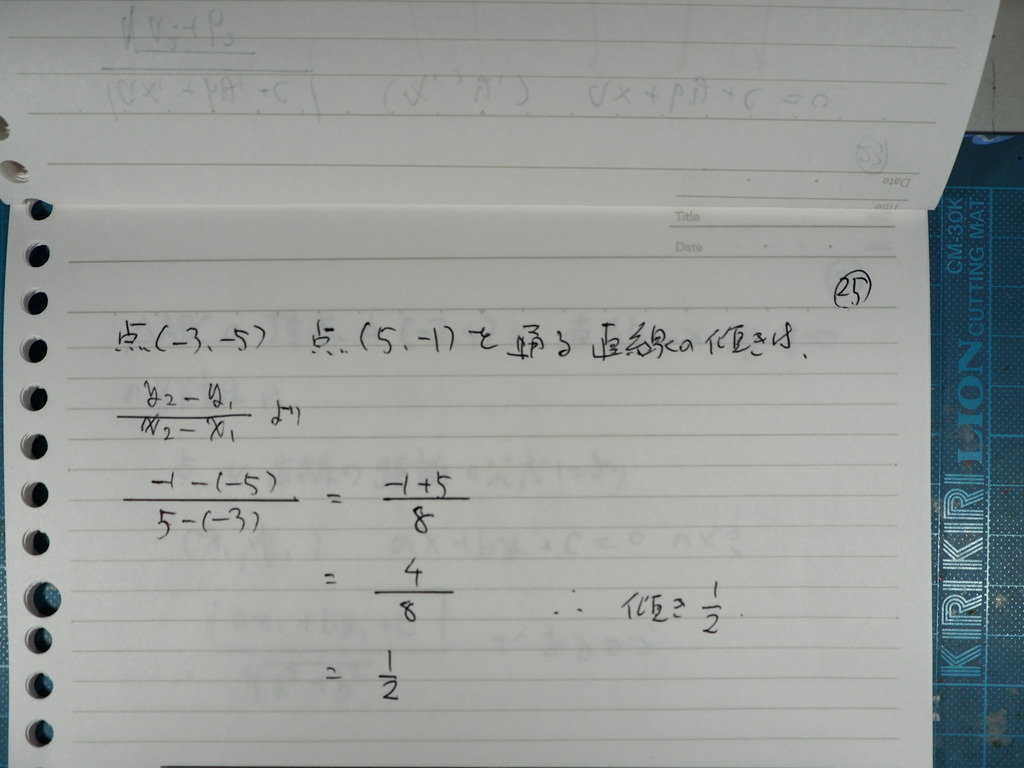 Title
Date
㉕
点(-3、-5) 点(5、-1)を通る直線の傾きは、
y₂-y₁/x₂-x₁ より
-1-(-5)/5-(-3) = -1+5/8
= 4/8 ∴ 傾き 1/2.
= 1/2
CM-30K
CUTTING MAT
KIRIKIRI LION